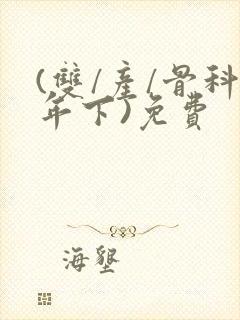 (雙/產/骨科
年下)免費
海墾